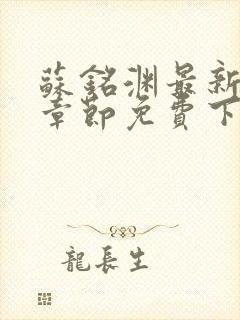 蘇銘淵最新
章節免費下
龍長生